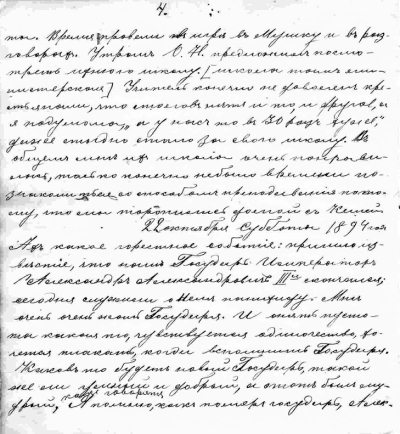 4.
та. Время провели въ игрѣ въ Мушку и въ раз-
говорахъ. Утромъ О. Н. предложилъ посмо-
трѣть ихнюю школу. [школа тамъ мин-
истерская] Учитель конечно не доволенъ кре-
стьянами, что
я подумала, „а у насъ то въ 30 разъ хуже,"
даже стыдно стало за свою школу. Въ
общемъ мнѣ ихъ школа очень понрави-
лась, только конечно не было времени по-
знакомиться со способомъ преподаванія пото-
му, что мы торопились домой
22 октября Суббота 1894 года
Ахъ какое горестное событіе: пришло из-
вѣстіе, что нашъ Государь Императоръ
Александръ Александровичъ III скончался;
сегодня служили о Немъ панихиду. Мнѣ
очень очень жаль Государя. И опять пусто-
та какая то, чувствуется одиночество, хо-
чется плакать, когда вспомнишь Государя.
Каковъ то будетъ новый Государь, такой
же ли умный и добрый, а этотъ былъ му-
дрый, какъ говорятъ, А помню, какъ померъ государь, Алек-